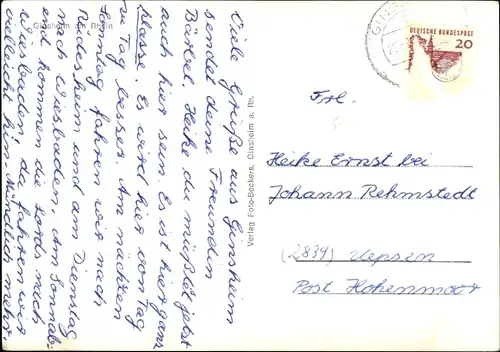 Ginsheim am Rhein
Viele Grüße aus Ginsheim
sendet deine Freundin
Bärbel. Heike du müßtet jetzt
auch hier sein. Es ist hier ganz
klasse. Es wird hier von Tag
zu Tag besser. Am nächsten
Sonntag fahren wir nach
Rüdesheim und am Dienstag
nach Wiesbaden. Am Sonnab-
end kommen die Lords nach
Wiesbaden da fahren wir
vielleicht hin. Mündlich mehr
Verlag Foto-Böckers, Ginsheim a. Rh.
GINS
DEUTSCHE BUNDESPOST
20
Frl.
Heike Ernst bei
Johann Rehmstedt
(2834) Uepsen
Post Hohenmoor